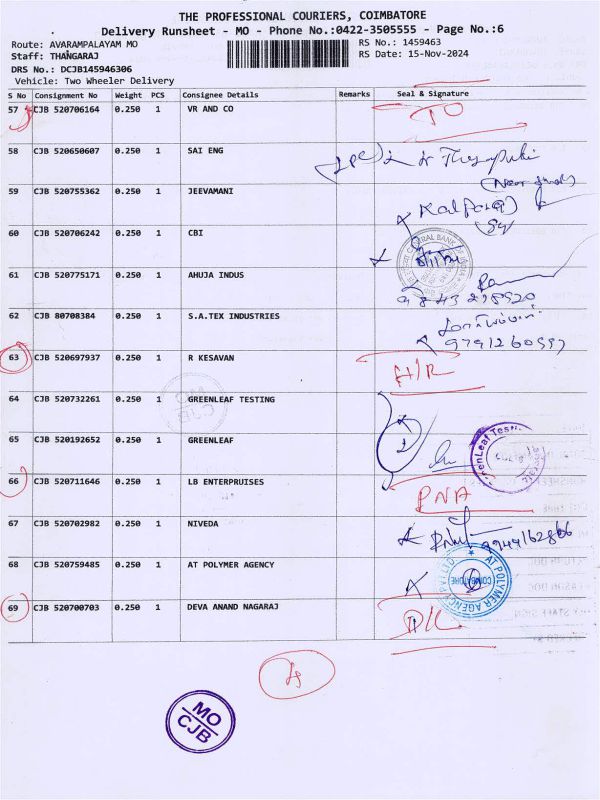 THE PROFESSIONAL COURIERS, COIMBATORE
Delivery Runsheet - MO - Phone No.:0422-3505555 - Page No.:6
Route: AVARAMPALAYAM MO
RS No.: 1459463
Staff: THANGARAJ
RS Date: 15-Nov-2024
DRS No.: DCJB145946306
Vehicle: Two Wheeler Delivery
S No Consignment No Weight PCS Consignee Details Remarks Seal & Signature
57 CJB 520706164 0.250 1 VR AND CO
58 CJB 520650607 0.250 1 SAI ENG
59 CJB 520755362 0.250 1 JEEVAMANI
60 CJB 520706242 0.250 1 CBI
61 CJB 520775171 0.250 1 AHUJA INDUS
62 CJB 80708384 0.250 1 S.A.TEX INDUSTRIES
63 CJB 520697937 0.250 1 R KESAVAN
64 CJB 520732261 0.250 1 GREENLEAF TESTING
65 CJB 520192652 0.250 1 GREENLEAF
66 CJB 520711646 0.250 1 LB ENTERPRUISES
PNA
67 CJB 520702982 0.250 1 NIVEDA
68 CJB 520759485 0.250 1 AT POLYMER AGENCY
AT POLYMER AGENCY
COIMBATORE
69 CJB 520700703 0.250 1 DEVA ANAND NAGARAJ
MO
CJB